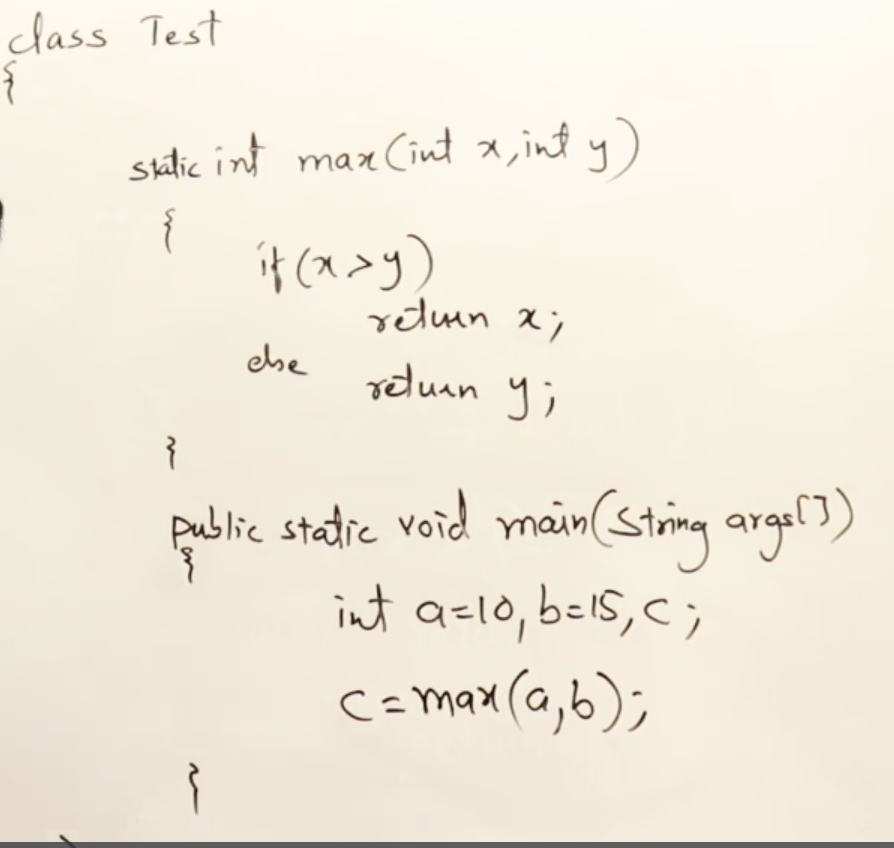 class Test
{
static int max(int x,int y)
{
if(x>y)
return x;
else
return y;
}
public static void main(String args[])
{
int a=10, b=15, c;
c=max(a,b);
}